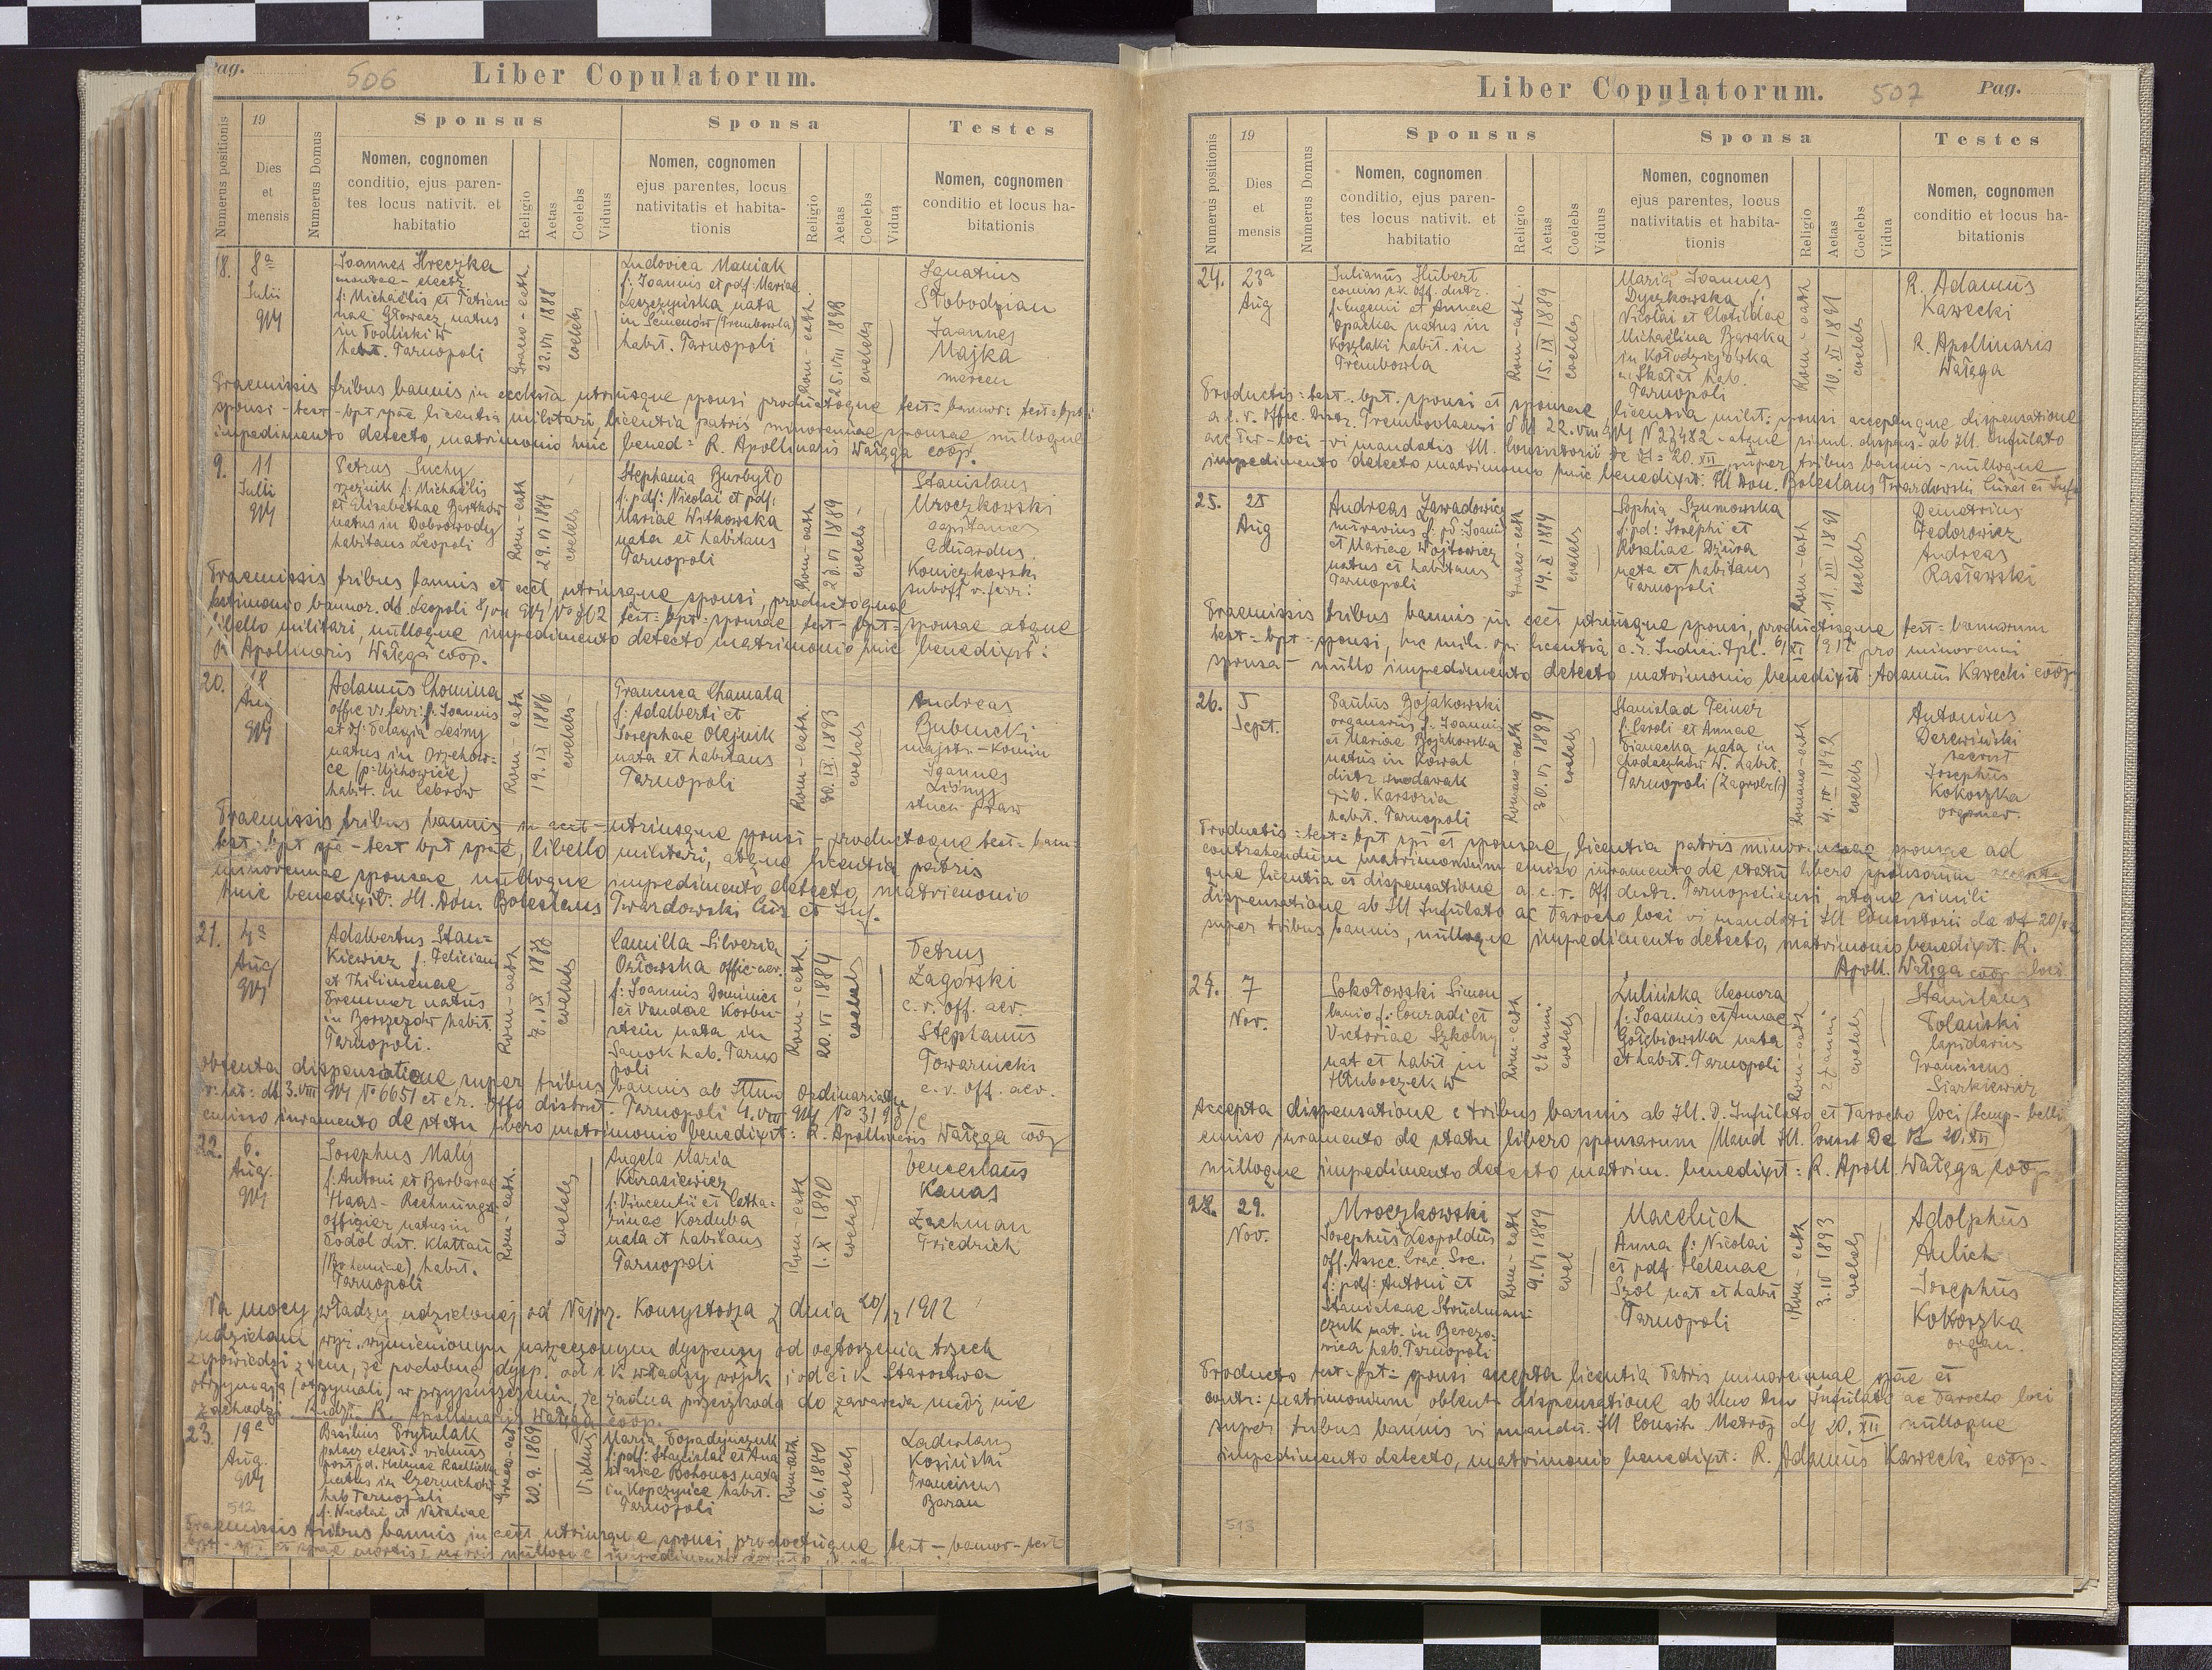 Pag.
506
Liber Copulatorum.
Numerus positionis
19
Dies
et
mensis
Numerus Domus
Sponsus
Nomen, cognomen
conditio, ejus paren-
tes locus nativit. et
habitatio
Religio
Aetas
Coelebs
Viduus
Sponsa
Nomen, cognomen
ejus parentes, locus
nativitatis et habita-
tionis
Religio
Aetas
Coelebs
Vidua
Testes
Nomen, cognomen
conditio et locus ha-
bitationis
18.
8a
Julii
Joannes Hreczka
f: Michaëlis et Tatian-
nae Głowacz, natus
in
habit. Tarnopoli
Graeco-cath
22.VII 1888
coelebs
Ludovica Maniak
f: Joannis et pdf: Mariae
Leszczyńska nata
in Semenów (Trembowla)
habit. Tarnopoli
Rom-cath
25.VIII 1893
coelebs
Ignatius
Słobodzian
Joannes
Majka
Praemissis tribus bannis in ecclesia utriusque sponsi productoque test= bannor: test=bpt:
sponsi-test-bpt spae licentia militari, licentia patris minorennae sponsae nulloque
impedimento detecto, matrimonio huic bened= R. Apollinaris Wałęga coop.
9.
11
Julii
Petrus Suchy
rzeźnik f: Michaëlis
et Elisabethae Bartków
natus in Dobrowody
habitans Leopoli
Rom-cath
29.VI 1884
coelebs
Stephania Burbyło
f: pdf: Nicolai et pdf:
Mariae Witkowska
nata et habitans
Tarnopoli
Rom-cath
1889
coelebs
Stanislaus
Mroczkowski
Eduardus
Konieczkowski
suboff v. ferr:
Praemissis tribus bannis et eccl utriusque sponsi, productoque
testimonio bannor. dd Leopoli test=bpt=sponsae test-bpt=sponsae atque
libello militari, nulloque impedimento detecto matrimonio huic benedixit:
R Apollinaris Wałęga coop.
20.
18
Aug
Adamus Chomina
offic v. ferr: f: Joannis
et df: Pelagia Leśny
natus in Orzechow-
ce
habit. in Cebrów
Rom-cath
19.IX 1886
coelebs
Francisca Chamala
f: Adalberti et
Josephae Olejnik
nata et habitans
Tarnopoli
Rom-cath.
30.IX.1893
coelebs
Andreas
Bubnicki
majstr-komin
Joannes
Liśnyj
stuch praw
Praemissis tribus bannis in eccl-utriusque sponsi-productoque test=ban=
test=bpt spi-test bpt spae, libello militari, atque licentia patris
minorennae sponsae, nulloque impedimento detecto, matrimonio
huic benedixit: Ill. Dom Boleslaus Twardowski Cur et Inf.
21.
4a
Aug
Adalbertus Stan=
kiewicz f. Feliciani
et Thilimenae
Bremmer natus
in Borszczów habit.
Tarnopoli.
Rom-cath
coelebs
Camilla-Silveria
Orłowska offic-aer.
f: Joannis Dominici
et Vandae Korbu-
stein nata in
Sanok hab. Tarno
poli
Rom-cath.
20.VI 1884
coelebs
Petrus
Zagórski
c.r. off. aer.
Stephanus
Towarnicki
c.r. off. aer.
Obtenta dispensatione super tribus bannis ab Illmo Ordinariatu
r: lat: dd 3.VIII No 6651 et c.r. Offo district. Tarnopoli No
emisso iuramento de statu libero matrimonio benedixit: R. Apollinaris Wałęga coop
22.
6.
Aug.
Josephus Malý
f: Antoni et Barbarae
Haas-Rechnungs-
offizier natus in
Podol dst. Klattau
(Bohemiae) habit.
Tarnopoli
Rom-cath.
coelebs
Angela Maria
Kurasiewicz
f: Vincentii et Catha=
rinae Korduba
nata et habitans
Tarnopoli
Rom-cath
1.IX 1890
coelebs
Venceslaus
Kanas
Zachman
Friedrich
Na mocy władzy udzielonej od Najprz. Konsystorza z dnia 20/12 1912
udzielam wyż. wymienionym narzeczonym dyspensy od ogłoszenia trzech
zapowiedzi z tem, że podobną dysp. od c k władzy wojsk i od c i k Starostwa
otrzymają (otrzymali) w przypuszczeniu, że żadna przeszkoda do zawarcia małż nie
zachodzi. R. Apollinaris Wałęga coop.
23.
19a
Aug.
Basilius Prytulak
palacz elektr. viduus
post p.d. Helenae
natus in Czernichów
hab Tarnopoli
f: Nicolai et Nataliae
Graeco-cath
20.9.1869
Viduus
Maria Topadynczuk
f: pdf: Stanislai et Ana
stasiae Bohonos nata
in Kopczyńce habit.
Tarnopoli
Rom-cath.
8.6.1880
coelebs
Ladislaus
Kosiński
Franciscus
Baran
512
Praemissis tribus bannis in eccl utriusque sponsi, productisque test=bannor-test
bpt-spi et spae mortis I uxoris nulloque impedimento
Liber Copulatorum.
507
Pag.
Numerus positionis
19
Dies
et
mensis
Numerus Domus
Sponsus
Nomen, cognomen
conditio, ejus paren-
tes locus nativit. et
habitatio
Religio
Aetas
Coelebs
Viduus
Sponsa
Nomen, cognomen
ejus parentes, locus
nativitatis et habita-
tionis
Religio
Aetas
Coelebs
Vidua
Testes
Nomen, cognomen
conditio et locus ha-
bitationis
24.
23a
Aug
Julianus Hubert
comiss c.k. off. distr.
f: Eugenii et Annae
Opacka natus in
Koszlaki habit. in
Trembowla
Rom-cath.
15.IX 1889
coelebs
Maria Joannes
Dyczkowska f:
Nicolai et Clotildae
Michaëlina Barska
in Kołodziejówka
Skałat hab.
Tarnopoli
Rom-cath
10.XI 1891
coelebs
R. Adamus
Kawecki
R. Apollinaris
Wałęga
Productis=test..bpt. sponsi et sponsae, licentia milit: sponsi acceptaque dispensatione
a c.r. Offic. Distr. Trembovlaensi 22.VIII No 27482-atque simul. dispens-ab Ill. Infulato
ac Par-loci-vi mandatis Ill. Consistorii de 20.XII super tribus bannis-nulloque
impedimento detecto matrimonio huic benedixit: Ill Dom. Boleslaus Twardowski Curat et Inful
25.
25
Aug
Andreas Zawadowicz
murarius f. pd. Joanni
et Mariae Wojtowicz
natus et habitans
Tarnopoli
Graeco-cath
14.X 1884
coelebs
Sophia Szumowska
f: pd: Josephi et
Rosaliae Dziura
nata et habitans
Tarnopoli
Rom-cath
11.XII 1891
coelebs
Demetrius
Fedorowicz
Andreas
Rasławski
Praemissis tribus bannis in eccl utriusque sponsi, productisque test=bannorum
test=bpt=sponsi, licentia c.r. Judici. Tpl. pro minorenni
sponsa-nullo impedimento detecto matrimonio benedixit. Adamus Kawecki coop
26.
5
Sept.
Paulus Bojakowski
organarius f. Joannis
et Mariae Bojakowska
natus in Kowal
distr Włodawak
gub. Karsoria
habit. Tarnopoli
Romano-cath
30.VI 1889
coelebs
Stanislaa Feiner
f: Caroli et Annae
Bianecka nata in
Chodaczków W. habit.
Tarnopoli (Zagrobela)
Romano-cath
4.IV 1892
coelebs
Antonius
Derewiński
Josephus
Kokoszka
organar.
Productis=test=bpt spi et sponsae, licentia patris minorennae sponsae ad
contrahendum matrimonium emisso iuramento de statu libero sponsorum accepta
que licentia et dispensatione a c.r. Off distr. Tarnopoliensi, atque simili
dispensatione ab Ill Infulato ac Parocho loci vi mandati Ill Consistorii de
super tribus bannis, nulloque impedimento detecto, matrimonio benedixit. R.
Apoll. Wałęga coop loci
27.
7
Nov.
Sokołowski Simon
lanio f: Conradi et
Victoriae Szkolny
nat et habit in
Hłuboczek W
Rom-cath
anni
coelebs
Zulińska Eleonora
f: Joannis et Annae
Gołębiowska nata
et habit. Tarnopoli
Rom-cath
anni
coelebs
Stanislaus
Polański
lapidarius
Franciscus
Siarkiewicz
Accepta dispensatione e tribus bannis ab Ill. D. Infulato et Parocho loci (temp-belli)
emisso juramento de statu libero sponsarum (Mand Ill. Consist De 20.XII)
nulloque impedimento detecto matrim. benedixit: R. Apoll Wałęga coop
28.
29.
Nov.
Mroczkowski
Josephus Leopoldus
off. Assec. Crac. Soc.
f: pdf: Antoni et
Stanislaae
czuk nat. in Berezo-
wica hab. Tarnopoli
Rom-cath
9.VI 1889
coel
Macelüch
Anna f: Nicolai
et pdf. Helenae
Szol nat et habit
Tarnopoli
Rom-cath
3.IV 1893
coelebs
Adolphus
Aulich
Josephus
Kokoszka
organ.
Producto test=bpt=sponsi accepta licentia Patris minorennae spae et
contr: matrimonium obtent dispensatione ab Illmo Dno Infulato ac Parocho loci
super tribus bannis vi mandti. Ill Consist. Metrop dd 20.XII nulloque
impedimento detecto, matrimonio benedixit: R. Adamus Kawecki coop-
513